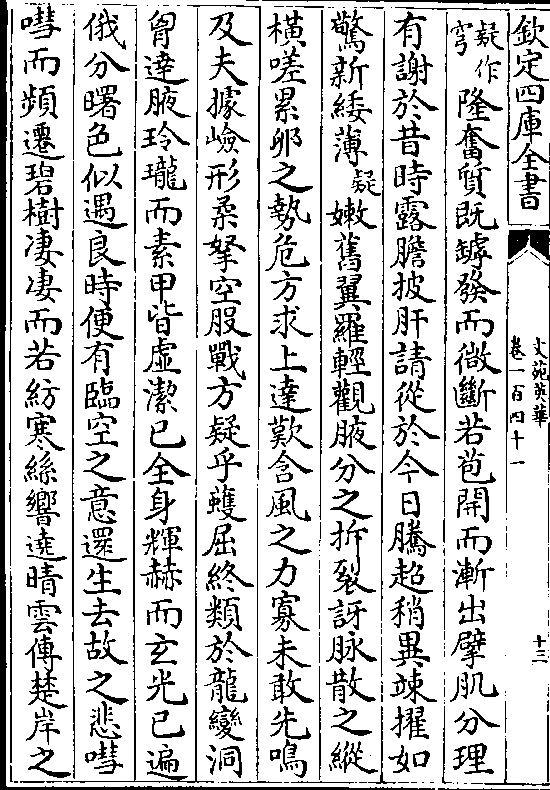 欽定四庫全書
文苑英華
卷一百四十一
十三
疑作穹隆奮質既罅發而微斷若苞開而漸出擘肌分理
有謝於昔時露膽披肝請從於今日騰超稍異竦擢如
驚新緌薄疑嫩舊翼羅輕觀腋分之拆裂訝脉散之縱
橫嗟累卵之勢危方求上達歎含風之力寡未敢先鳴
及夫據嶮形柔拏空股戰方疑乎蠖屈終類於龍變洞
胷達腋玲瓏而素甲皆虛潔已全身輝赫而玄光已遍
俄分曙色似遇良時便有臨空之意還生去故之悲嘒
嘒而頻遷碧樹凄凄而若紡寒絲響遶晴雲傳楚岸之